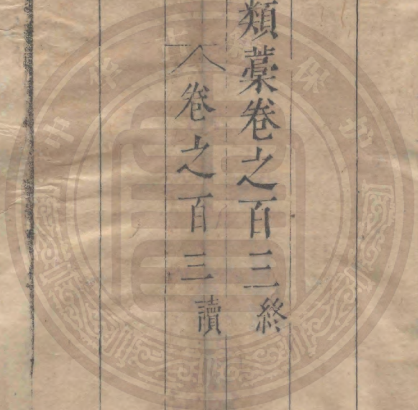 類藁卷之百三終
卷之百三讀